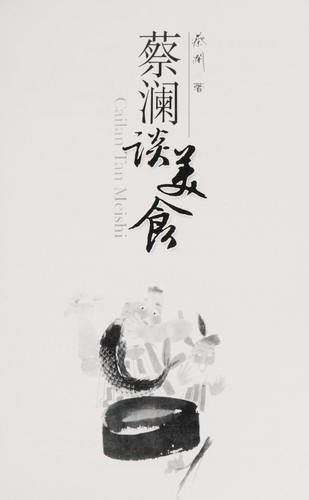 蔡澜 著
蔡澜谈美食
Cailan Tan Meishi